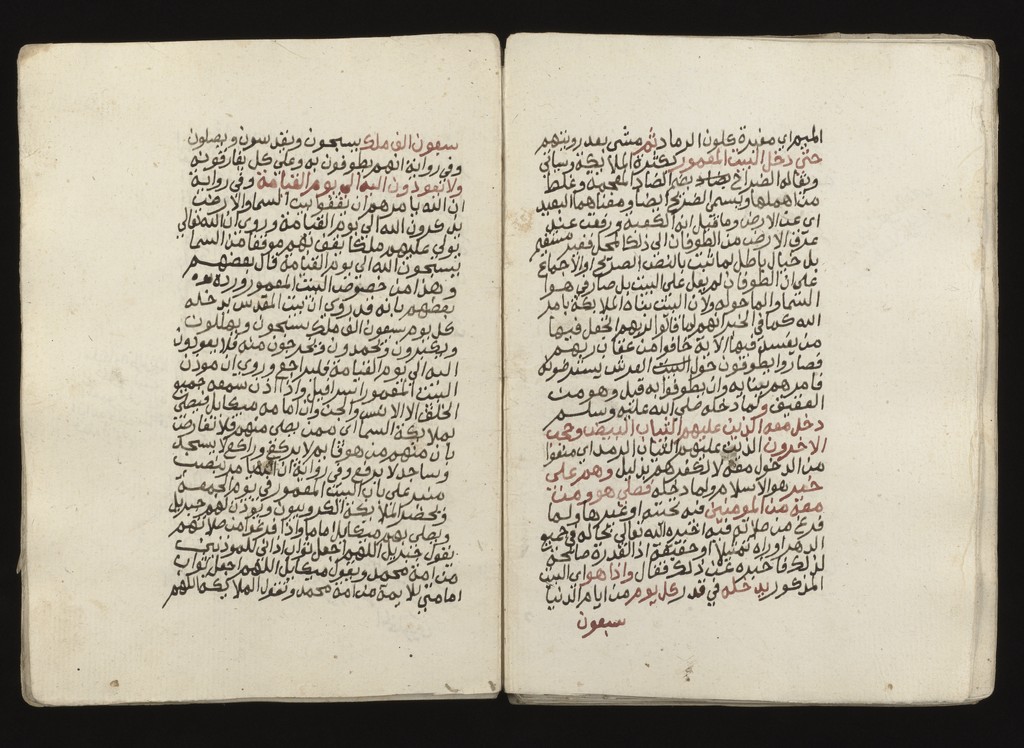 الميم اي مغبرة كلون الرماد ثم مشي بعد رويتهم
حتي دخل البيت المعمور بكثرة الملايكة وبياني
ويقاله الضراح بضم الضاد المعجمة وغلط
من اهملها ويسمي الضريح ايضا ومعناهما البعيد
اي عن الارض وما قيل انه الكعبة ورفعت عند
غرق الارض من الطوفان الي ذلك المحل فغير مستقيم
بل خيال باطل لما ثبت بالنص الصريح والاجماع
علي ان الطوفان لم يعل علي البيت بل صار في هوا
السما والما حوله ولان البيت بناه الملايكة بامر
الله كما في الخبر انهم لما قالوا لربهم اتجعل فيها
من يفسد فيها الاية خافوا من عقاب ربهم
فصاروا يطوفون حول العرش يسترضونه
فامرهم ببنايه وان يطوفوا به قيل وهو من
العقيق ولما دخله صلي الله عليه وسلم
دخل معه الذين عليهم الثياب البيض وحجب
الاخرون الذين عليهم الثياب الرمد اي منعوا
من الدخول معه لا لكفرهم بدليل وهم علي
خير هو الاسلام ولما دخله فصلي هو ومن
معه من المومنين فيه يحتم او غيرها ولما
فرغ من صلاته فيه اخبره الله تعالي بحاله في جميع
الدهر اوراه تمثيلا او حقيقة اذ القدرة صالحة
لذلك فاخبره عن ذلك فقال واذا هو اي البيت
المذكور يدخله في قدر كل يوم من ايام الدنيا
سبعون
سبعون الف ملك يسبحون ويقدسون ويصلون
وفي رواية انهم يطوفون به وعلي كل يفارقونه
ولا يعودون اليه الي يوم القيامة وفي رواية
ان الله يامرهم ان يقفوا بين السما والارض
يذكرون الله الي يوم القيامة وروي ان الله تعالي
يولي عليهم ملكا يقف بهم موقفا من السما
يسبحون الله الي يوم القيامة قال بعضهم
وهذا من خصوص البيت المعمور ورده
بعضهم بانه قد روي ان بيت المقدس يدخله
كل يوم سبعون الف ملك يسبحون ويهللون
ويكبرون ويحمدون ويخرجون منه فلا يعودون
اليه الي يوم القيامة فليراجع وروي ان موذن
البيت المعمور اسرافيل واذا اذن سمعه جميع
الخلق الا الانس والجن وان امامه ميكايل فيصلي
بملايكة السما اي ممن يصلي منهم فلا تعارضه
بان منهم من هو قايم لا يركع وراكع لا يسجد
وساجد لا يرفع وفي رواية ان الله يامر بنصب
منبر علي باب البيت المعمور في يوم الجمعة
ويحضر الملايكة الكروبيون ويوذن لهم جبريل
ويصلي بهم ميكايل اماما واذا فرغوا من صلاتهم
يقول جبريل اللهم اجعل ثواب اذاني للموذنين
من امة محمد ويقول ميكايل اللهم اجعل ثواب
امامتي للايمة من امة محمد وتقول الملايكة اللهم